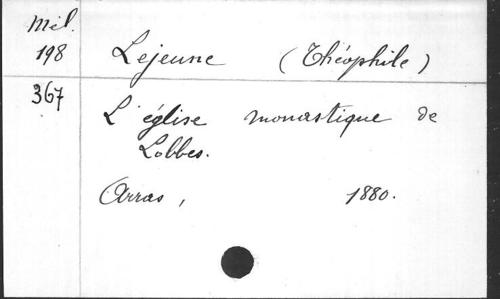 Mél.
198
Lejeune (Théophile)
367
L'église monastique de
Lobbes.
Arras, 1880.